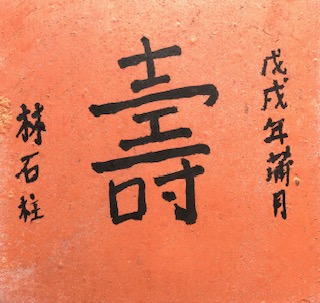 戊戌年蒲月
壽
林石柱